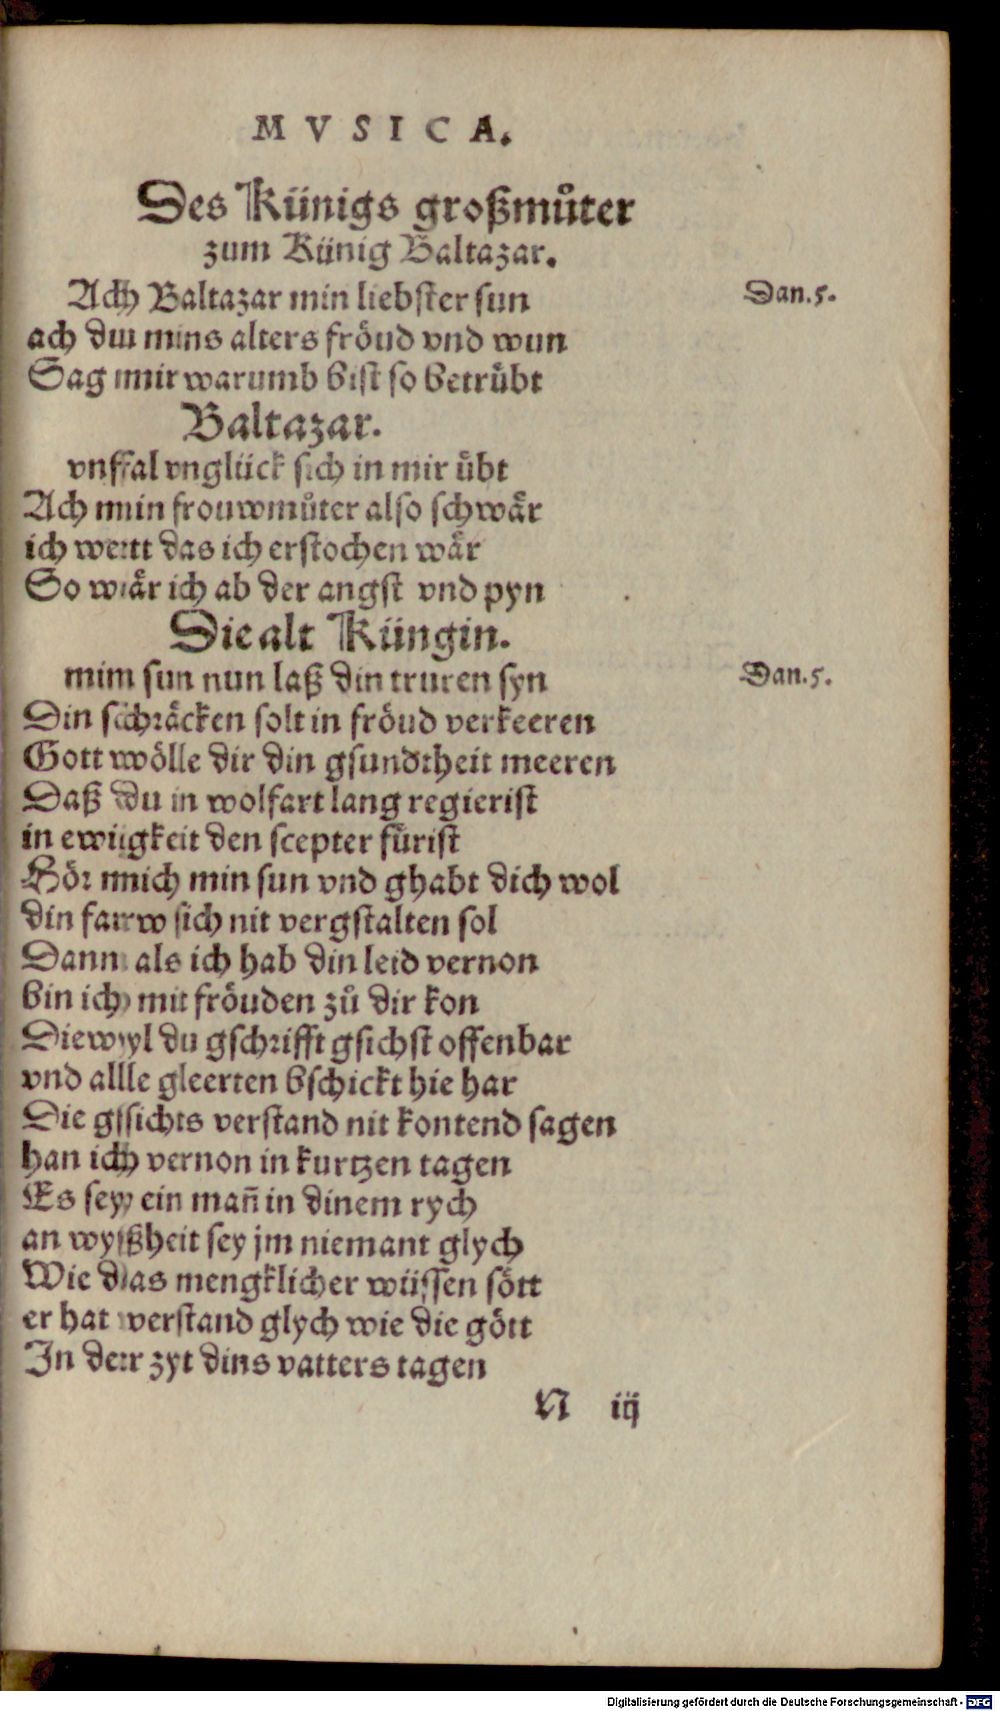 MVSICA.
Des Künigs großmůter
zum Künig Baltazar.
Ach Baltazar min liebster sun
Dan.5.
ach du mins alters fröud vnd wun
Sag mir warumb bist so betrübt
Baltazar.
vnfal vnglück sich in mir übt
Ach min frouwmůter also schwär
ich wett das ich erstochen wär
So wär ich ab der angst vnd pyn
Die alt Küngin.
mim sun nun laß din truren syn
Dan.5.
Din schräcken solt in fröud verkeeren
Gott wölle dir din gsundtheit meeren
Daß du in wolfart lang regierist
in ewigkeit den scepter fürist
Hör mich min sun vnd ghabt dich wol
din farw sich nit vergstalten sol
Dann als ich hab din leid vernon
bin ich mit fröuden zů dir kon
Diewyl du gschrifft gsichst offenbar
vnd alle gleerten bschickt hie har
Die gsichts verstand nit kontend sagen
han ich vernon in kurtzen tagen
Es sey ein mañ in dinem rych
an wyßheit sey jm niemant glych
Wie das mengklicher wüssen sött
er hat verstand glych wie die gött
In der zyt dins vatters tagen
N iij
Digitalisierung gefördert durch die Deutsche Forschungsgemeinschaft - DFG